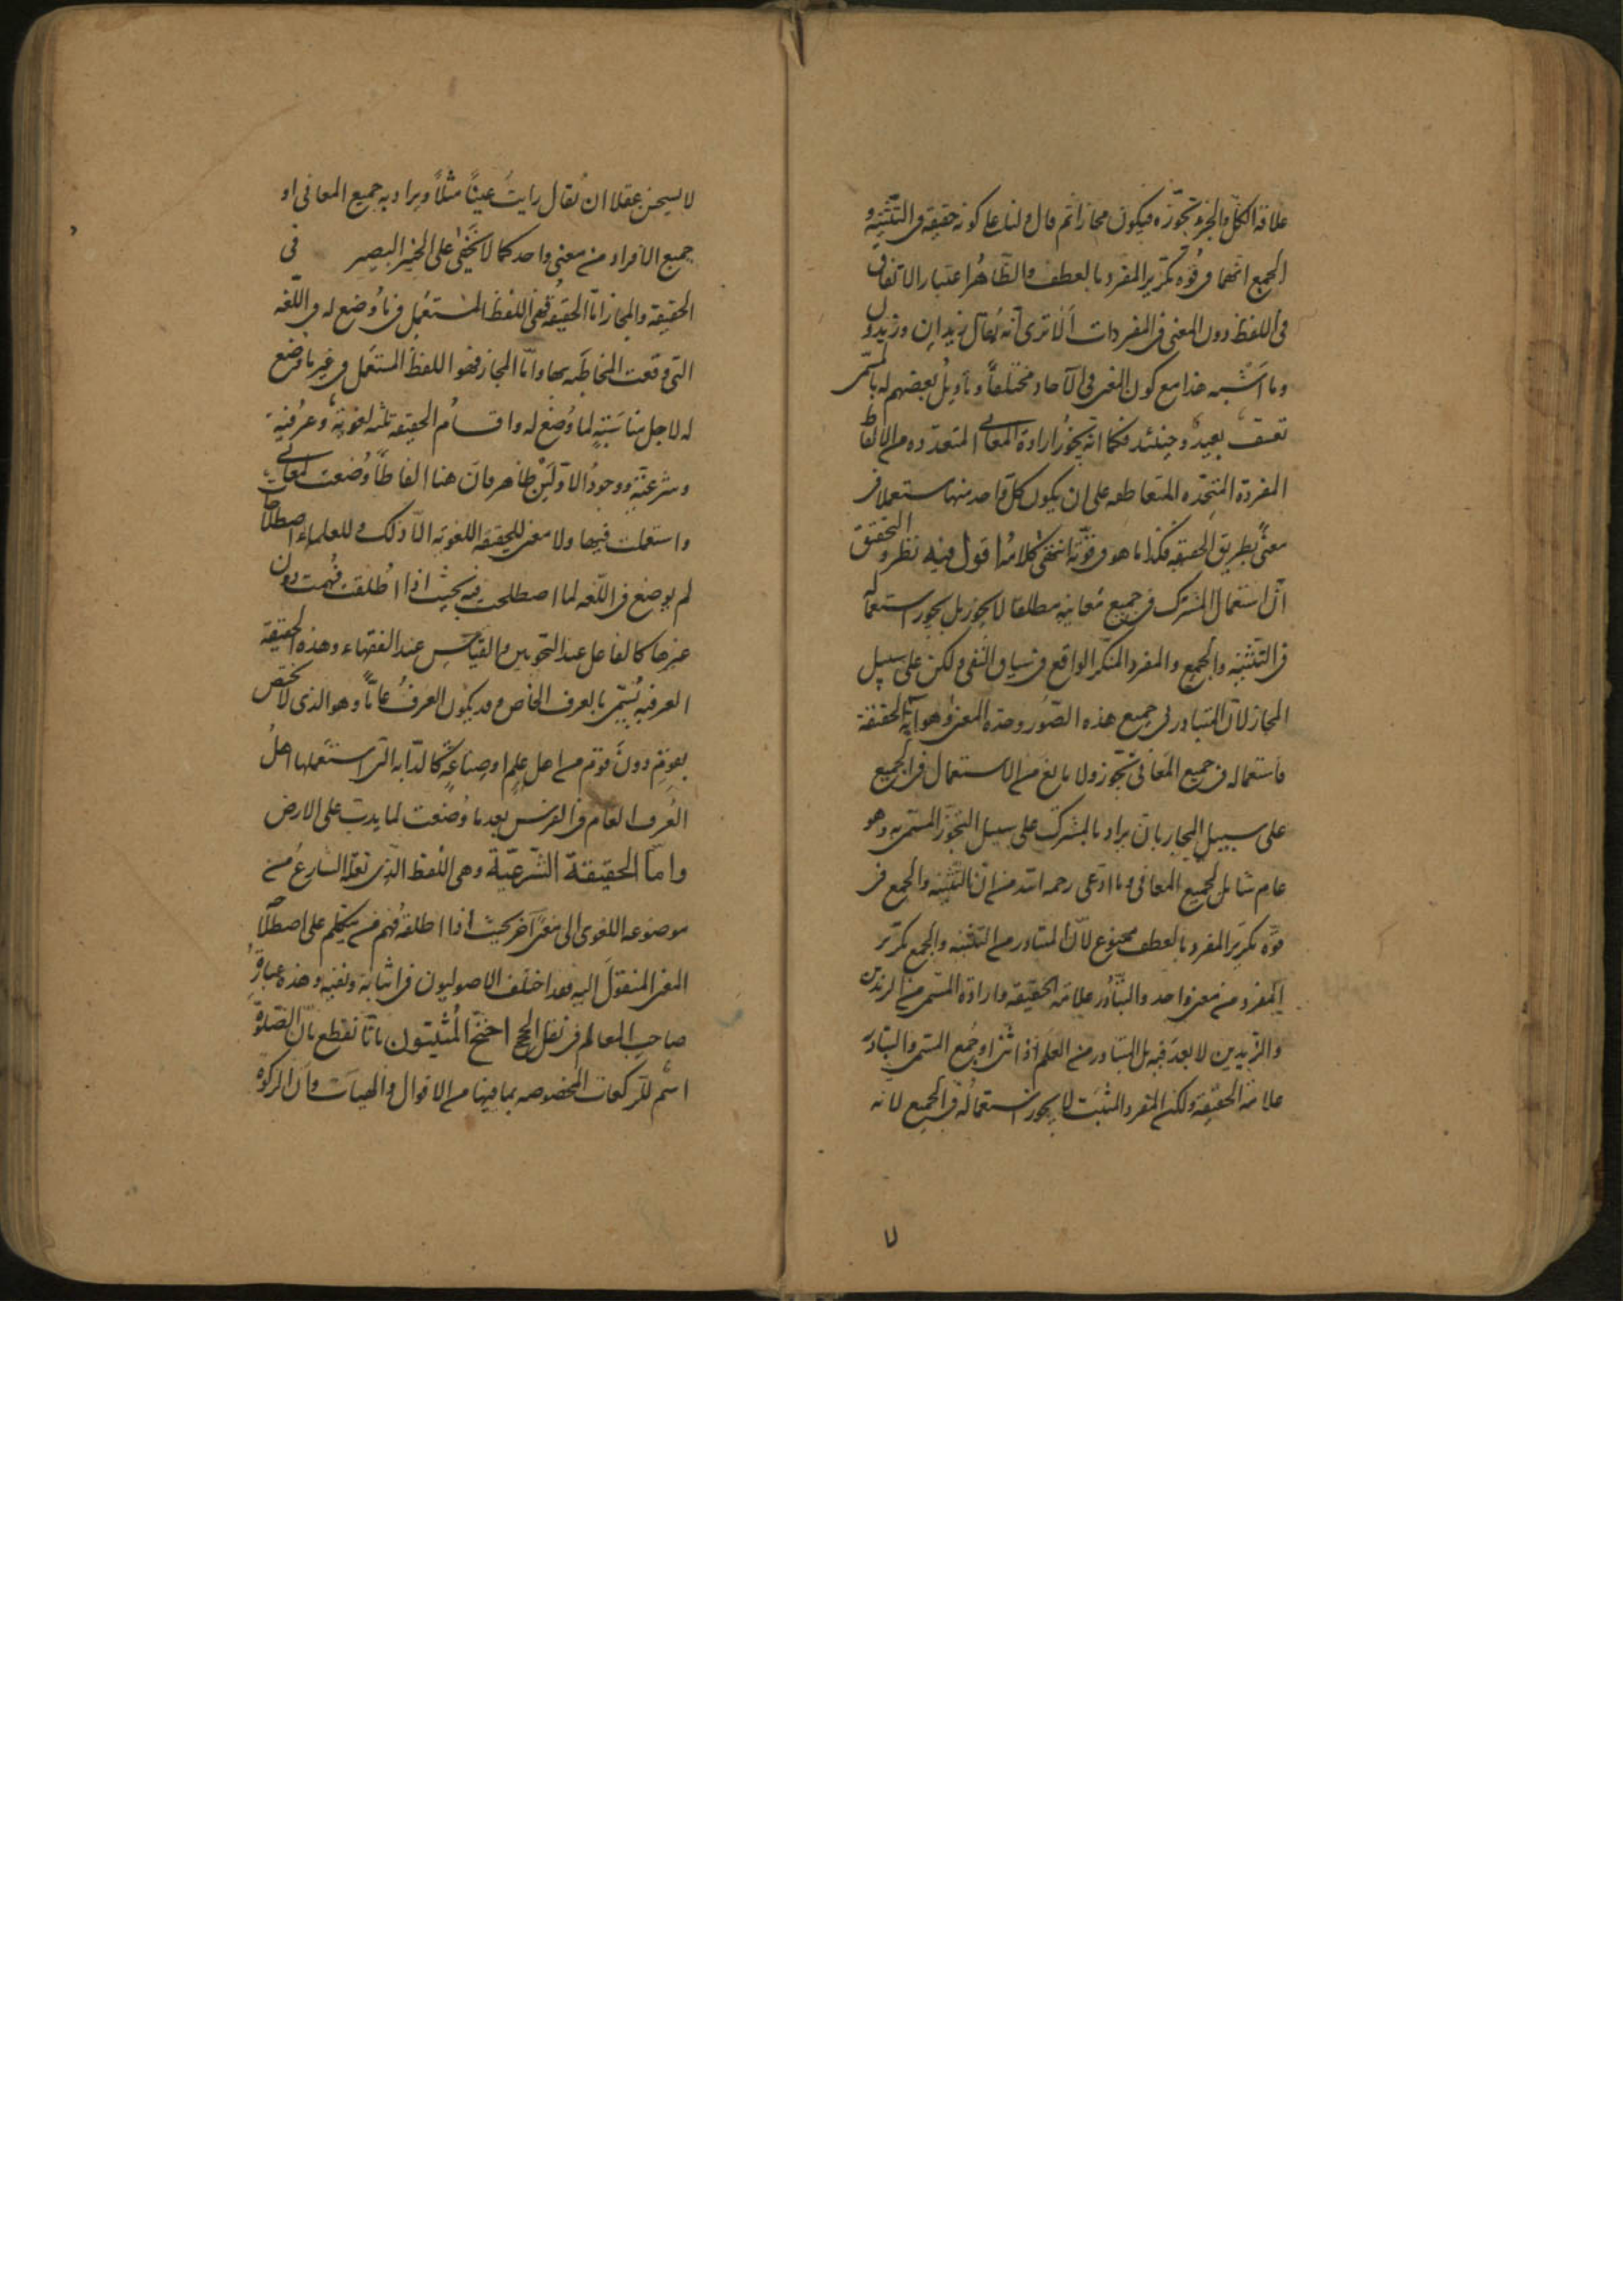 علاقة الكلّ والجزء تجوّزه فيكون مجازا ثم قال ولنا على كونه حقيقة فى التثنية و
الجمع انهما فى قوّة تكرير المفرد بالعطف والظّاهُر اعتبار الاتفاق
فى اللفظ دون المعنى فى المفردات ألا ترى أنّه يُقال زيدان وزيدون
وما اشبه هذا مع كون المعنى فى الآحاد مختلفاً وتأويلُ بعضهم له بالمسمّى
تعسف بعيدٌ وحينئذ فكما انّه يجوزُ ارادة المعانى المتعدّده من الالفاظ
المفردة المتحِّده المتعاطفه على ان يكون كلّ واحد منها مستعملا فى
معنىً بطريق الحقيقة فكذا ما هو فى قوّته انتهى كلامُه اقول فيه نظر والتحقيق
انّ استعمال المشترك فى جميع مَعانيه مطلقا لا يجوز بل يجوز استعماله
فى التثنيه والجمع والمفرد المنكّر الواقع فى سياق النّفى ولكن على سبيل
المجاز لانّ المتبادر فى جميع هذه الصّور وحدة المعنى وهو آية الحقيقة
فاستعماله فى جميع المَعانى تجّوز ولا مانع من الاستعمال فى الجميع
على سبيل المجاز بان يراد بالمشترك على سبيل التجوّز المسمّى به وهو
عام شامل لجميع المعانى وما ادّعى رحمه الله من انّ التثنيه والجمع فى
قوّه تكرير المفرد بالعطف ممنوع لانّ المتبادر من التثنيه والجمع تكرير
المفرد من معنى واحد والتبادُر علامة الحقيقه وارادة المسمّى من الزيدين
والزّيدين لا بعدَ فيه بل المتبادر من العلم اذا ثنى او جُمع المسمى والتبادر
علامة الحقيقة ولكن المفرد المثبت لا يجوز استعمالُه فى الجميع لانه
لا يحسن عقلا ان يُقال رايتُ عينًا مثلاً ويراد به جميع المعانى او
جميع الافراد من معنى واحد كما لا يَخفىٰ على الخبير البصير فى
الحقيقة والمجاز امّا الحقيقُه فهى اللفظ المستعمل فى ما وُضع له فى اللّغه
التى وقعت المخاطبَه بها وامّا المجاز فهو اللفظ المستعمل فى غير ما وضع
له لاجل مناسَبَتِهِ لما وُضع له واقسامُ الحقيقه ثلثه لغويّة وعرُفيّة
وشرعيّة ووجودُ الاوّلَيْن ظاهر فانّ هنا الفاظاً وُضعت لمعانى
واستعملت فيها ولا معنى للحقيقة اللغويّه الّا ذلك وللعلماء اصطلاحات
لم يوضع فى اللّغه لما اصطلحت فيه بحيث اذا اُطلقت فُهمت دون
غيرها كالفاعل عند النّحويين والقياس عند الفقهاء وهذه الحقيقة
العرفيه يُسمّى بالعرف الخاص وقد يكون العرفُ عامّاً وهو الذى لا يختص
بقومٍ دونَ قوم من اهل علمٍ او صِناعَةٍ كالدّابه الّتى استعملها اهلُ
العُرف العام فى الفرس بعد ما وُضعت لما يدب على الارض
وامّا الحقيقة الشّرعيّة وهى اللفظ الّذى نقله الشارعُ من
موضوعه اللغوى الى معنًى آخر بحيث اذا اطلقه فُهم من يتكلم على اصطلاحه
المعنى المنقول اليه فقد اختلف الاصوليون فى اثباته ونفيه وهذه عبارةُ
صاحب المعالم فى نقل الحجج احتجّ المثبتون بانّا نقطع بانّ الصّلوة
اسم للرّكعات المخصوصه بما فيها من الاقوال والهيآت وانّ الزكوة